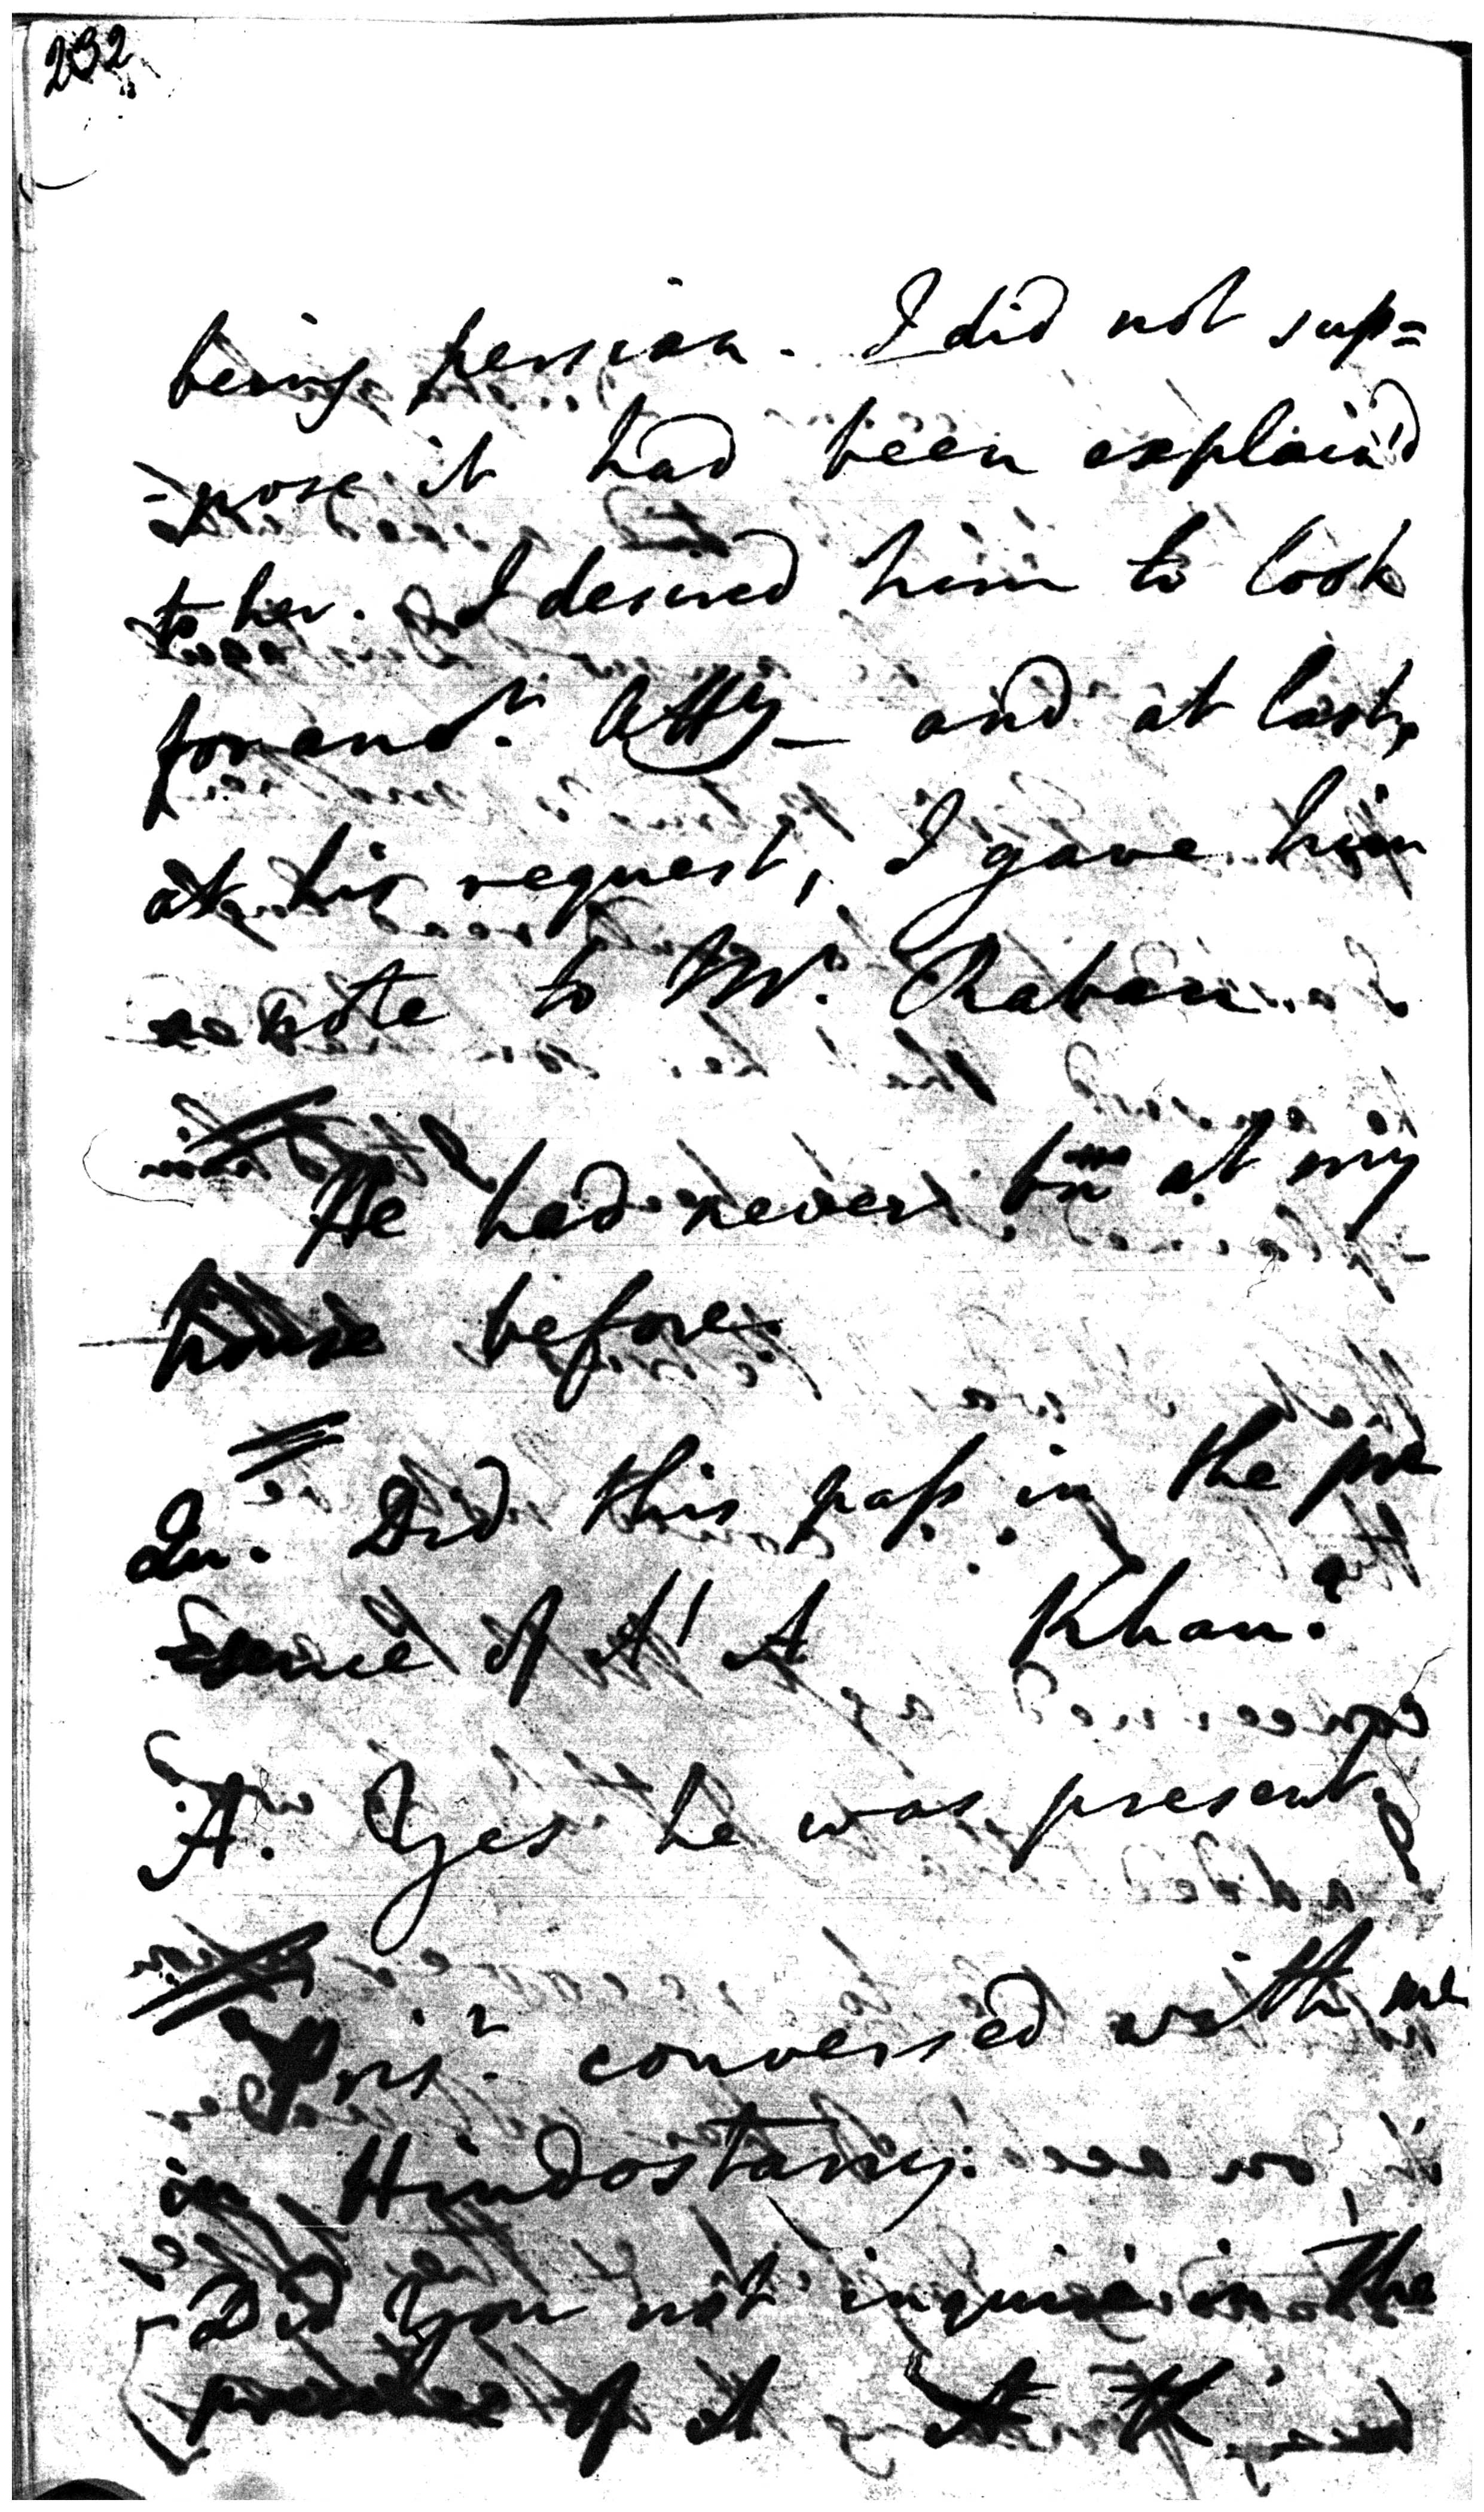 232
being persian. I did not sup=
-pose it had been explain'd
to her. I desired him to look
for anor. Atty — and at last,
at his request, I gave him
a note to Mr. Raban
He had never been at my
house before.
Qu. Did this pass in the pre
sence of A! A Khan?
A. Yes he was present.
Prisr. conversed with me
in Hindostany.
Did you not inquire in the
presence of A A K